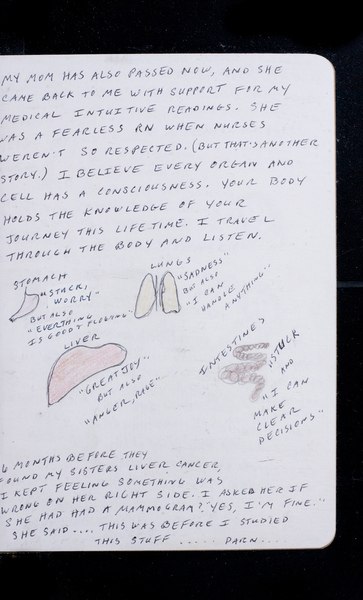 MY MOM HAS ALSO PASSED NOW, AND SHE
CAME BACK TO ME WITH SUPPORT FOR MY
MEDICAL INTUITIVE READINGS. SHE
WAS A FEARLESS RN WHEN NURSES
WEREN'T SO RESPECTED. (BUT THAT'S ANOTHER
STORY.) I BELIEVE EVERY ORGAN AND
CELL HAS A CONSCIOUSNESS. YOUR BODY
HOLDS THE KNOWLEDGE OF YOUR
JOURNEY THIS LIFETIME. I TRAVEL
THROUGH THE BODY AND LISTEN.
STOMACH
WORRY"
BUT ALSO
"EVERYTHING
IS GOOD & FLOWING"
LUNGS
"SADNESS"
BUT ALSO
"I CAN
HANDLE
ANYTHING"
LIVER
"GREAT JOY"
BUT ALSO
"ANGER, RAGE"
INTESTINES
"STUCK"
AND
"I CAN
MAKE
CLEAR
DECISIONS"
6 MONTHS BEFORE THEY
FOUND MY SISTERS LIVER CANCER,
I KEPT FEELING SOMETHING WAS
WRONG ON HER RIGHT SIDE. I ASKED HER IF
SHE HAD HAD A MAMMOGRAM? "YES, I'M FINE."
SHE SAID .... THIS WAS BEFORE I STUDIED
THIS STUFF ...... DARN ....